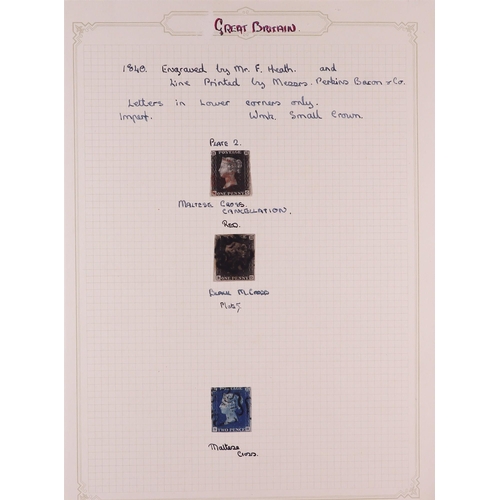 GREAT BRITAIN
1840. Engraved by Mr. F. Heath. and
Line Printed by Messrs. Perkins Bacon & Co.
Letters in Lower corners only.
Imperf. Wmk. Small Crown
PLATE 2.
POSTAGE
ONE PENNY
MALTESE CROSS
CANCELLATION.
RED.
ONE PENNY
BLACK M CROSS
TWO PENCE
Maltese
Cross.